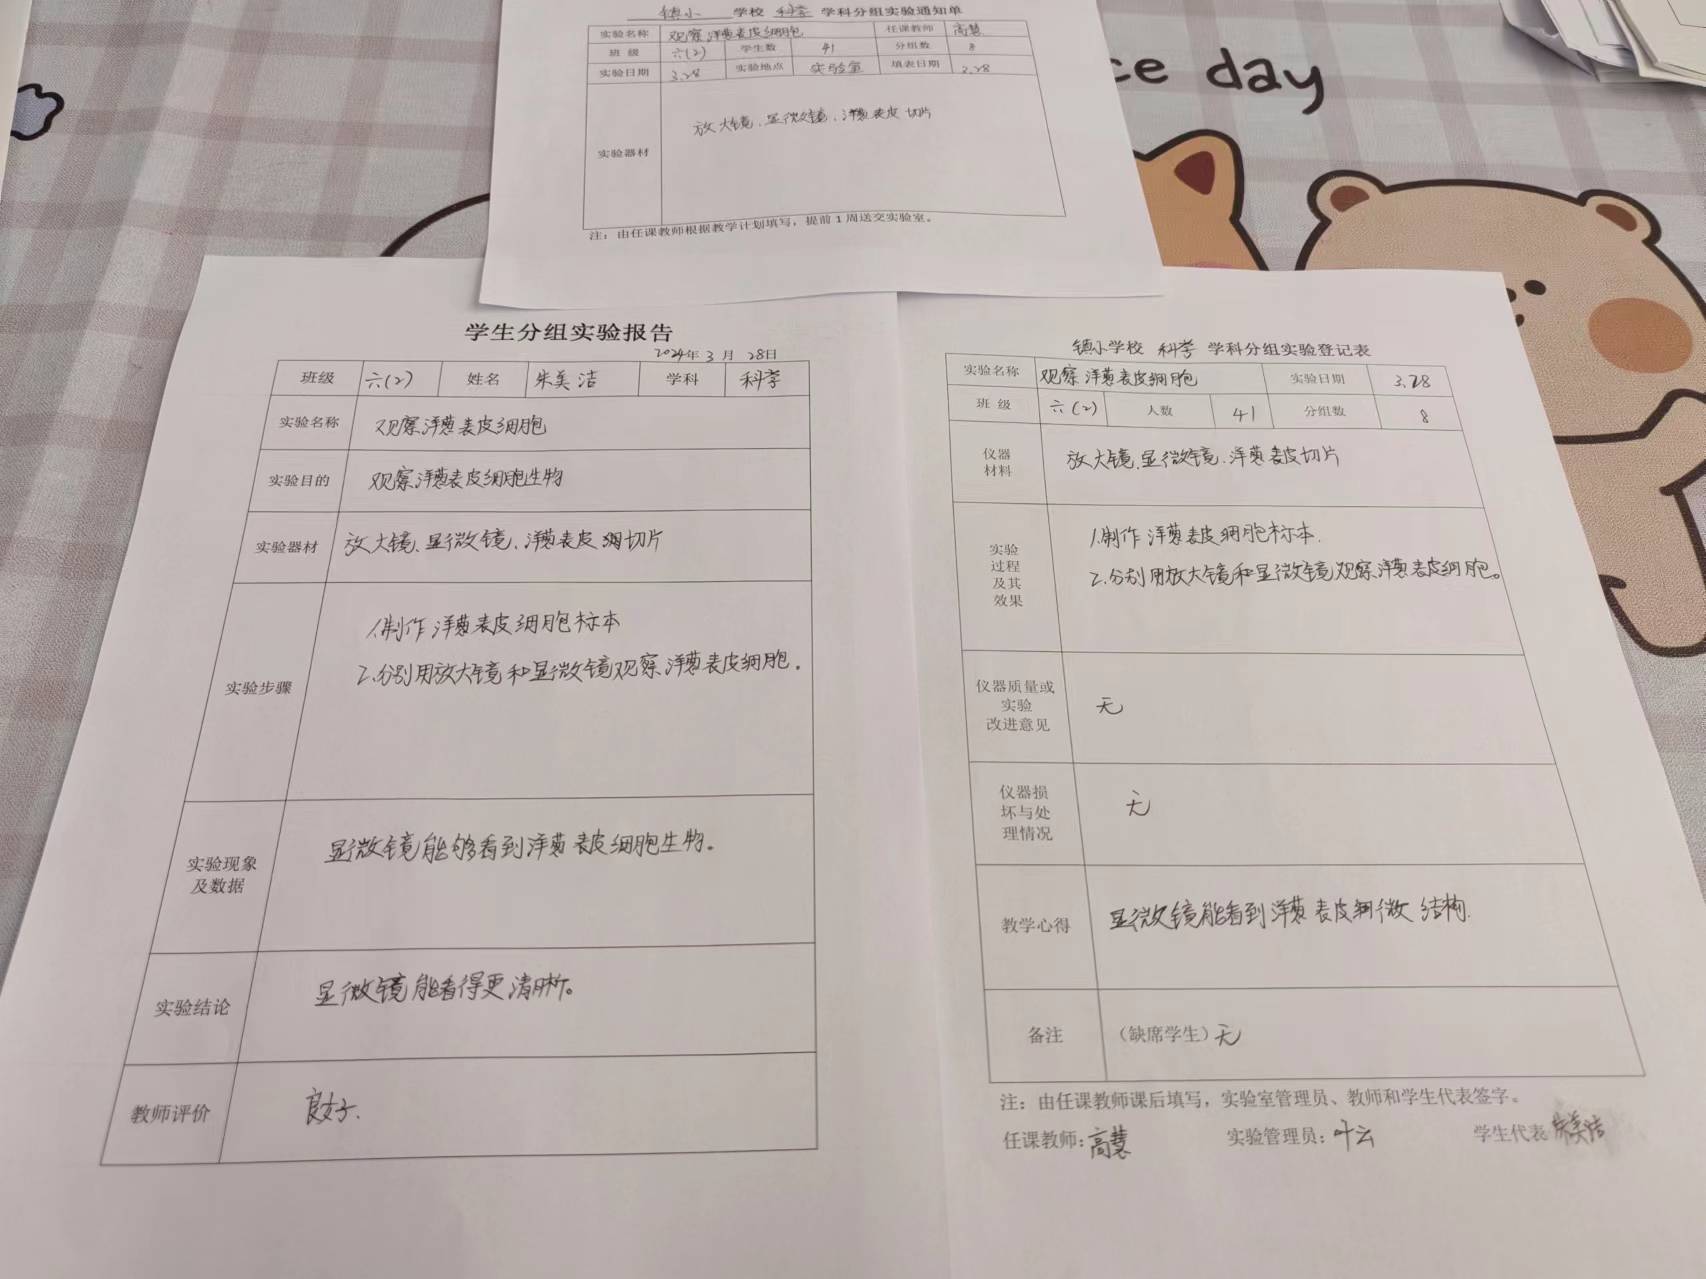 镇小 学校 科学 学科分组实验通知单
实验名称 观察洋葱表皮细胞 任课教师 高慧
班 级 六(2) 学生数 41 分组数 8
实验日期 3.28 实验地点 实验室 填表日期 2.28
实验器材 放大镜、显微镜、洋葱表皮切片
注：由任课教师根据教学计划填写，提前1周送交实验室。
ce day
学生分组实验报告
2024年 3 月 28日
班级 六(2) 姓名 朱美洁 学科 科学
实验名称 观察洋葱表皮细胞
实验目的 观察洋葱表皮细胞生物
实验器材 放大镜、显微镜、洋葱表皮切片
实验步骤
1.制作洋葱表皮细胞标本
2.分别用放大镜和显微镜观察洋葱表皮细胞.
实验现象
及数据
显微镜能够看到洋葱表皮细胞生物。
实验结论 显微镜能看得更清晰。
教师评价 良好.
镇小学校 科学 学科分组实验登记表
实验名称 观察洋葱表皮细胞 实验日期 3.28
班 级 六(2) 人数 41 分组数 8
仪器
材料
放大镜、显微镜、洋葱表皮切片
实验
过程
及其
效果
1.制作洋葱表皮细胞标本.
2.分别用放大镜和显微镜观察洋葱表皮细胞。
仪器质量或
实验
改进意见
无
仪器损
坏与处
理情况
无
教学心得 显微镜能看到洋葱表皮细微结构.
备注 （缺席学生）无
注：由任课教师课后填写，实验室管理员、教师和学生代表签字。
任课教师：高慧 实验管理员：叶云 学生代表 朱美洁